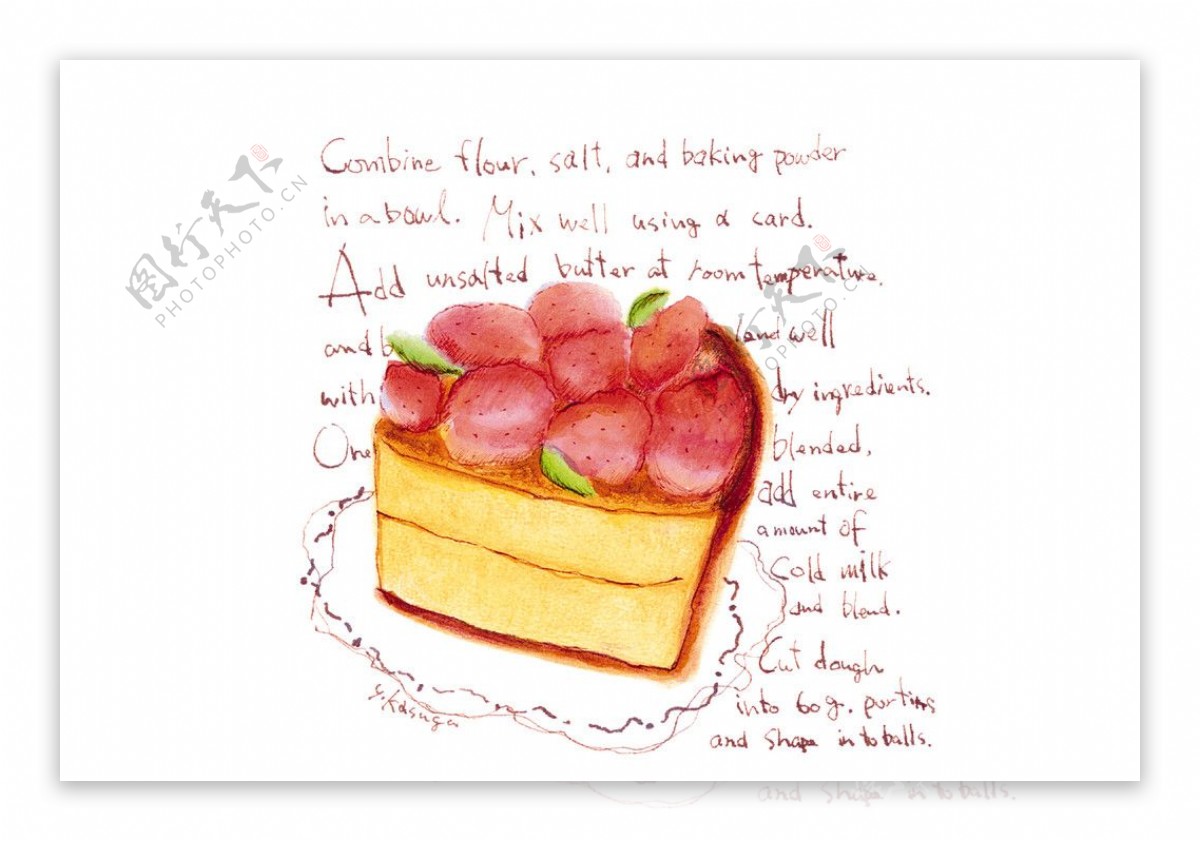 Combine flour, salt, and baking powder
in a bowl. Mix well using a card.
Add unsalted butter at room temperature.
and b land well
with dry ingredients.
One blended,
add entire
amount of
Cold milk
and blend.
Cut dough
into 60g. portins
and shape in to balls.
y.Kasuga
图行天下
PHOTOPHOTO.CN
图行天下
PHOTO.CN
and shape in to balls.